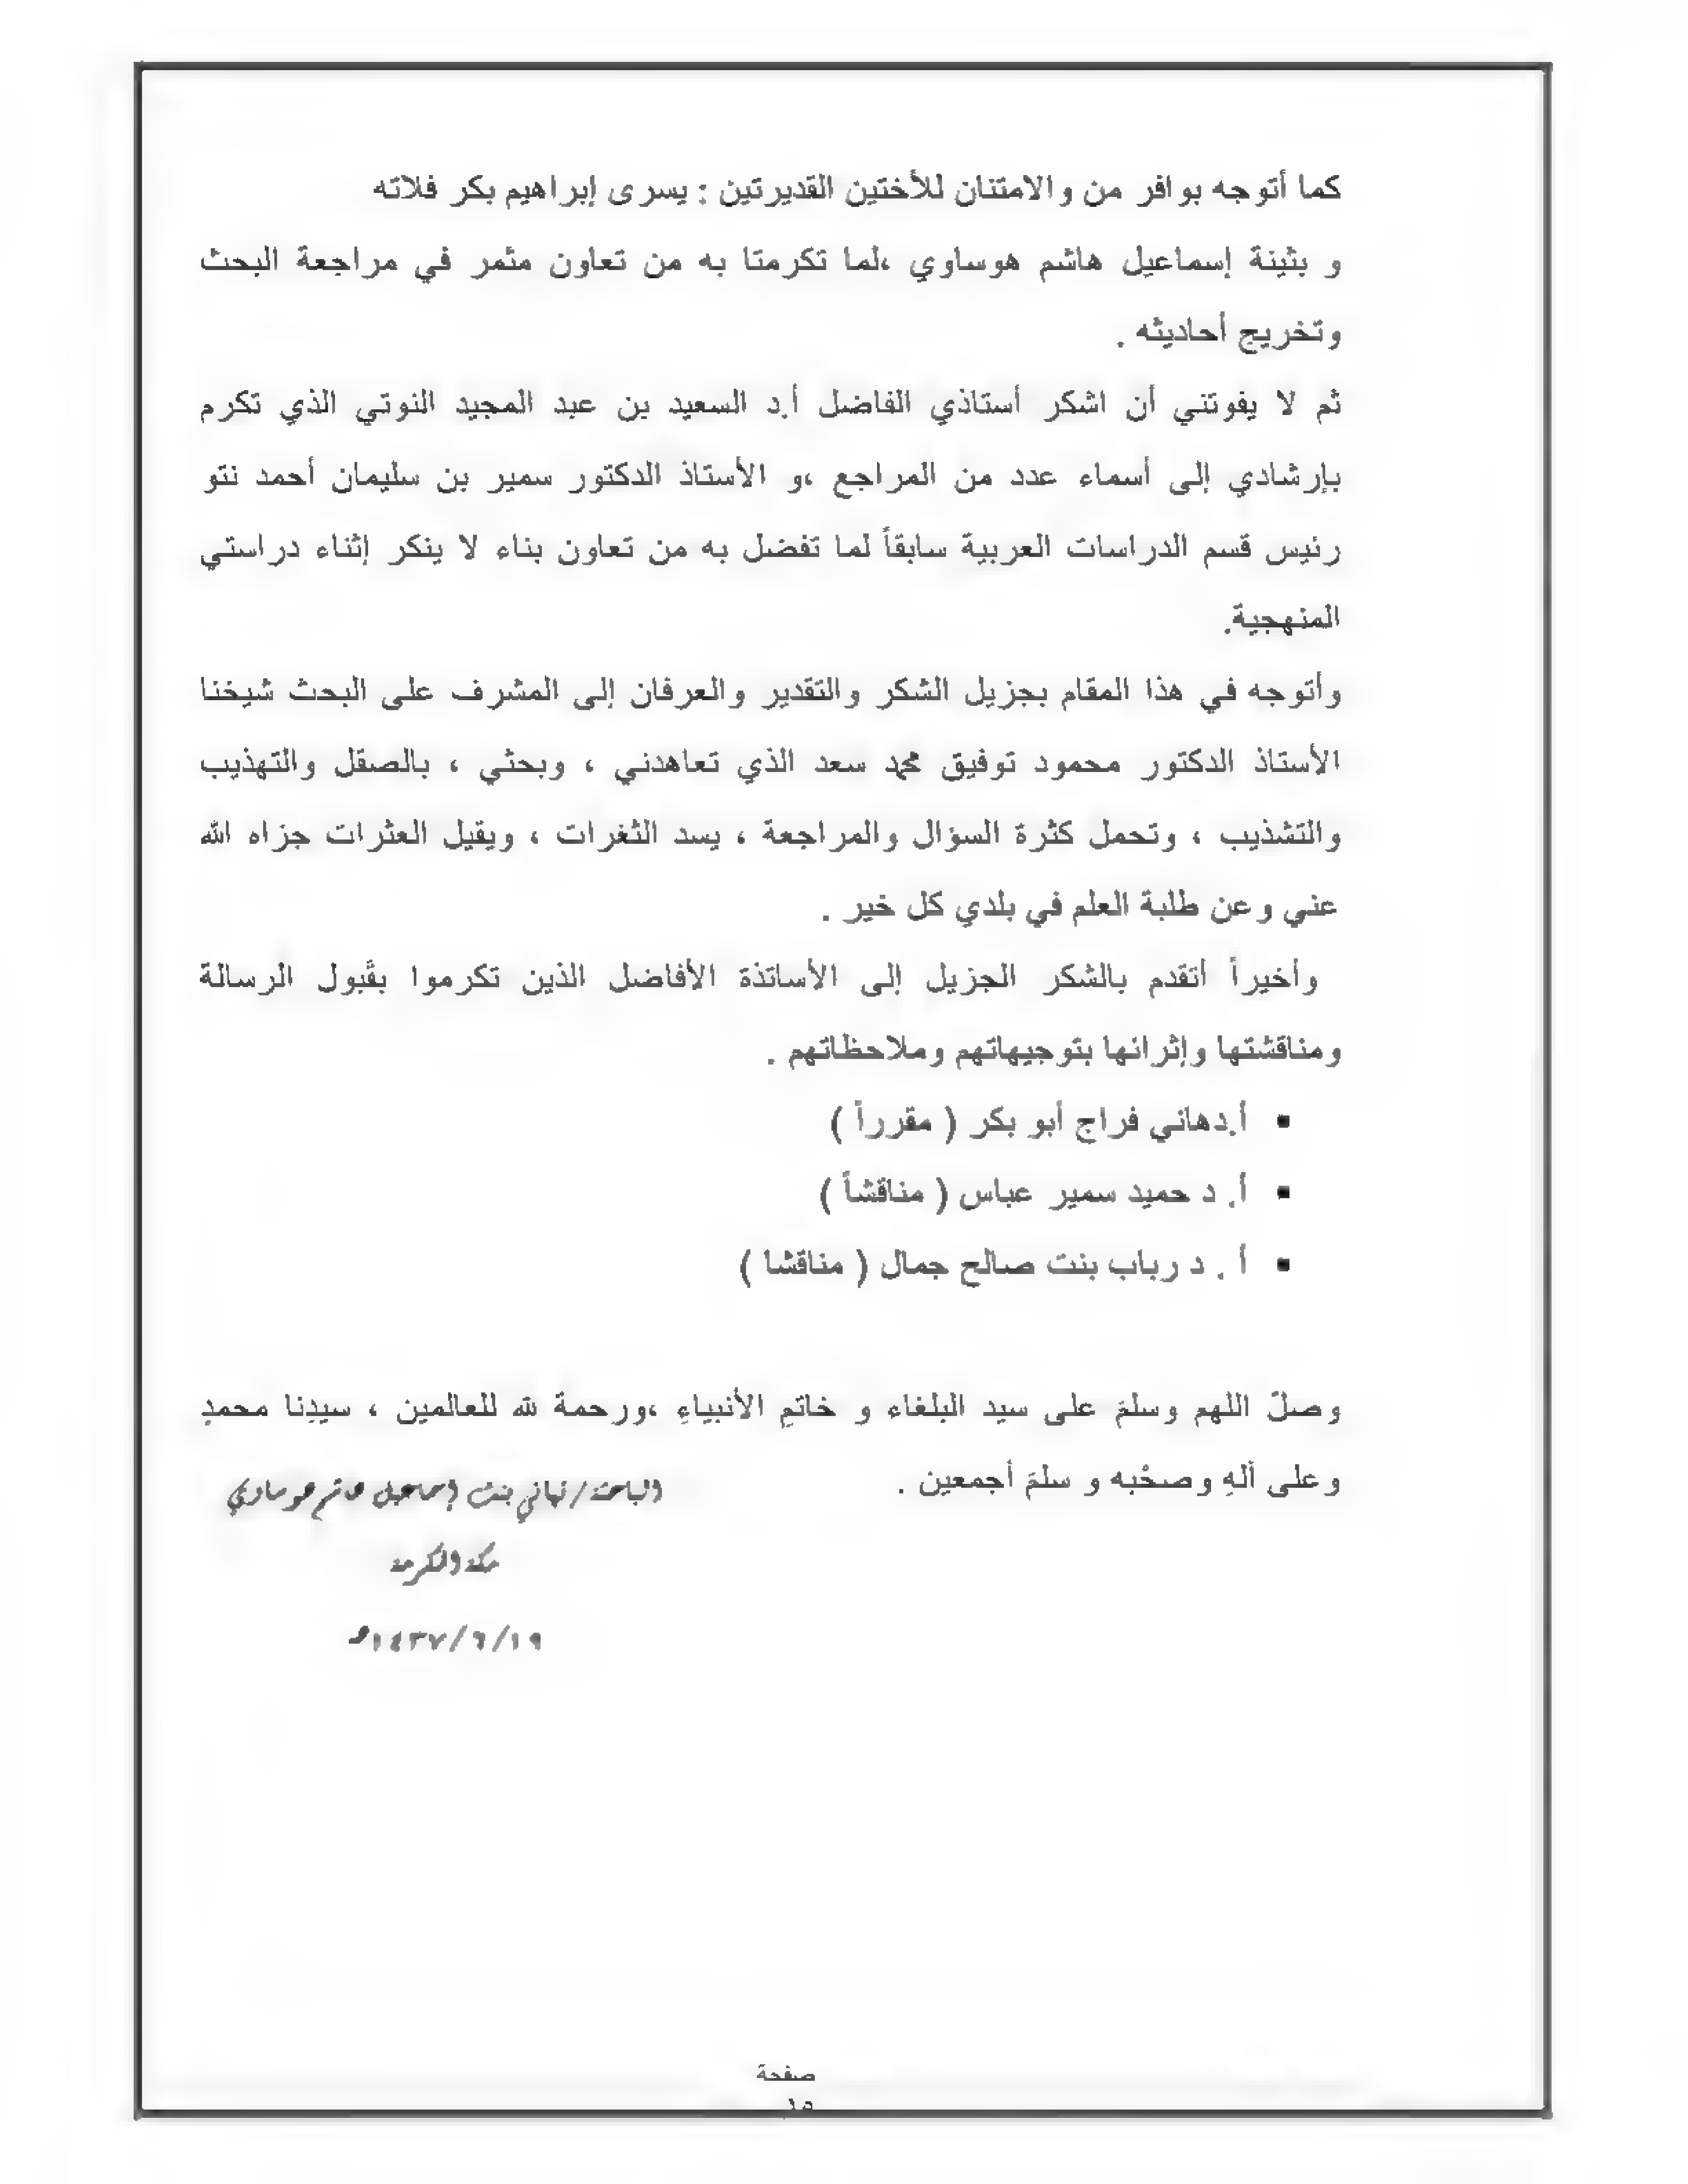 كما أتوجه بوافر من والامتنان للأختين القديرتين : يسرى إبراهيم بكر فلاته
و بثينة إسماعيل هاشم هوساوي ،لما تكرمتا به من تعاون مثمر في مراجعة البحث
وتخريج أحاديثه .
ثم لا يفوتني أن اشكر أستاذي الفاضل أ.د السعيد بن عبد المجيد النوتي الذي تكرم
بإرشادي إلى أسماء عدد من المراجع ،و الأستاذ الدكتور سمير بن سليمان أحمد نتو
رئيس قسم الدراسات العربية سابقاً لما تفضل به من تعاون بناء لا ينكر إثناء دراستي
المنهجية.
وأتوجه في هذا المقام بجزيل الشكر والتقدير والعرفان إلى المشرف على البحث شيخنا
الأستاذ الدكتور محمود توفيق محمد سعد الذي تعاهدني ، وبحثي ، بالصقل والتهذيب
والتشذيب ، وتحمل كثرة السؤال والمراجعة ، يسد الثغرات ، ويقيل العثرات جزاه الله
عني وعن طلبة العلم في بلدي كل خير .
وأخيراً أتقدم بالشكر الجزيل إلى الأساتذة الأفاضل الذين تكرموا بقَبول الرسالة
ومناقشتها وإثرائها بتوجيهاتهم وملاحظاتهم .
▪ أ.دهاني فراج أبو بكر ( مقرراً )
▪ أ. د حميد سمير عباس ( مناقشاً )
▪ أ . د رباب بنت صالح جمال ( مناقشا )
وصلّ اللهم وسلمَ على سيد البلغاء و خاتمِ الأنبياءِ ،ورحمة لله للعالمين ، سيدِنا محمدٍ
وعلى ألهِ وصحْبه و سلمَ أجمعين .
الباحثة / تهاني بنت إسماعيل هاشم هوساوي
مكة المكرمة
١٤٣٧/٦/١٩هـ
صفحة
١٥